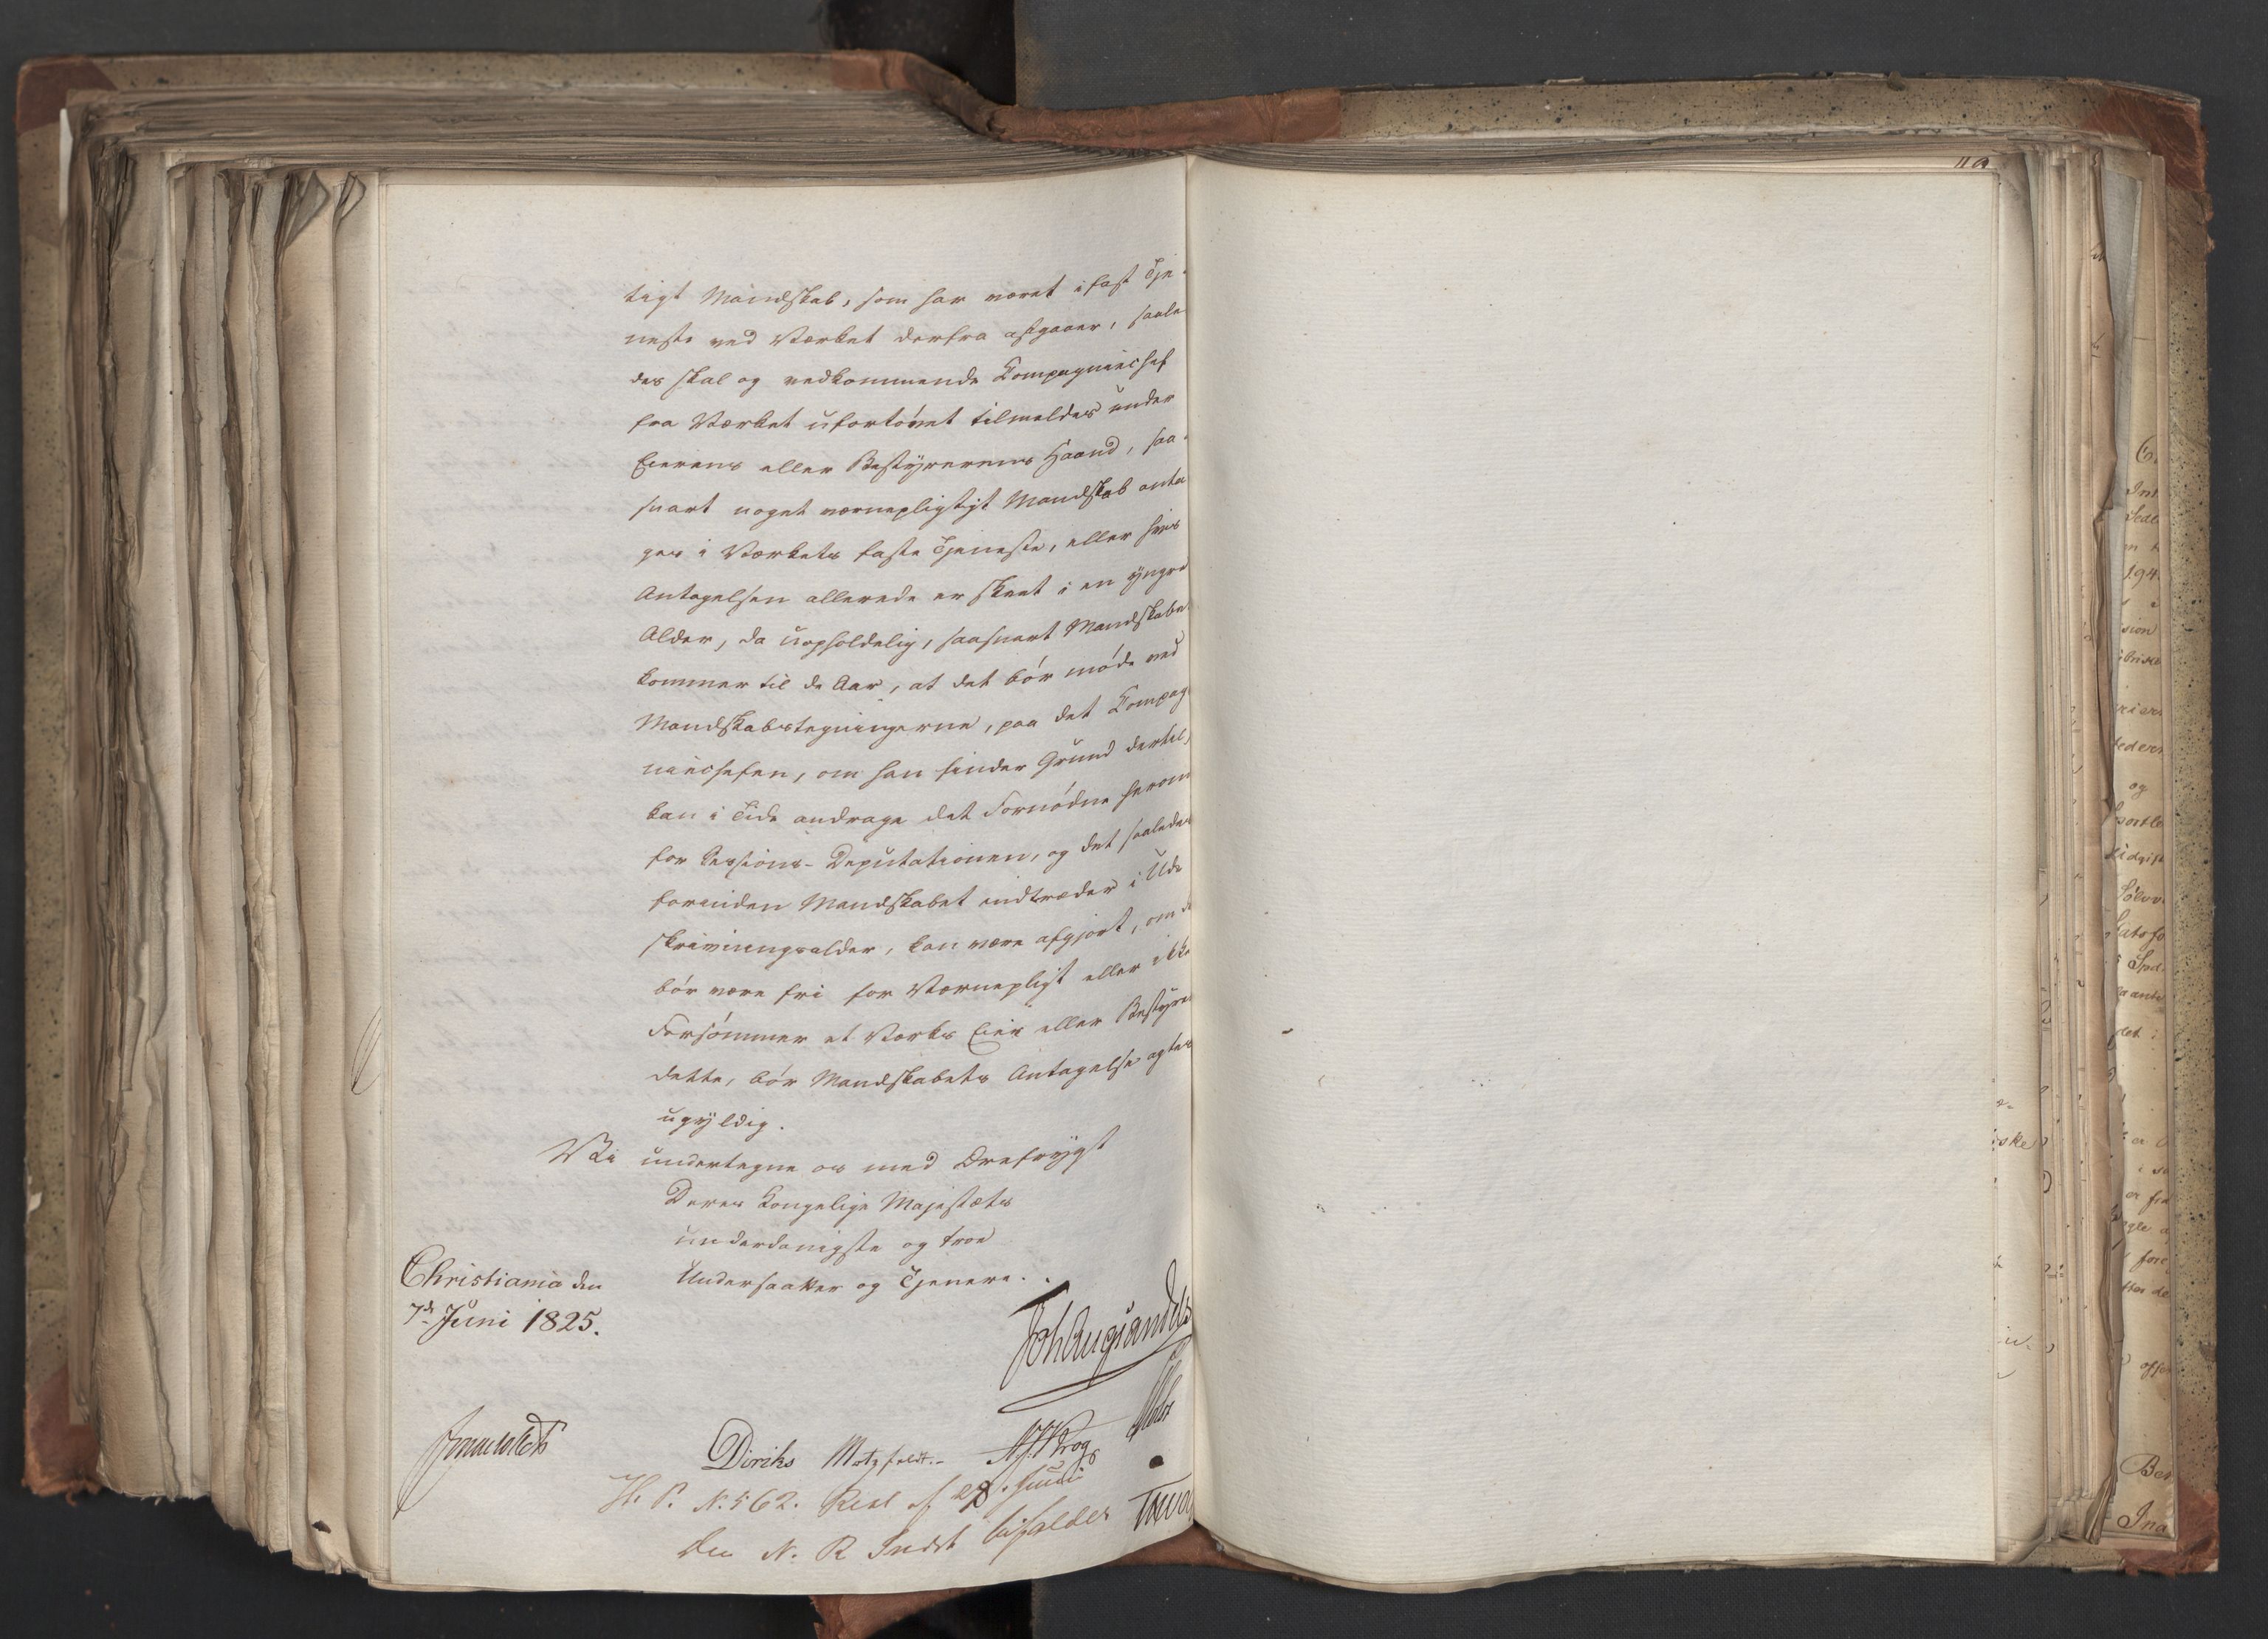 tigt Mandskab, som har været i fast Tje-
neste ved Værket derfra afgaaer, saale
des skal og vedkommende Compagniechef
fra Værket ufortøvet tilmeldes under
Eierens eller Bestyrerens Haand, saa-
snart noget værnepligtigt Mandskab anta
ges i Værkets faste Tjeneste, eller hvis
Antagelsen allerede er skeet i en yngre
Alder, da uopholdelig, saasnart Mandskabet
kommer til de Aar, at det bør møde ved
Mandskabstegningerne, paa det Compag
niechefen, om han finder Grund dertil,
kan i Tide andrage det Fornødne herom
for Sessions-Deputationen, og det saaledes
forinden Mandskabet indtræder i Uds
skrivningsalder, kan være afgjort, om de
bør være fri for Værnepligt eller ikke
Forsømmer et Værks Eier eller Bestyre
dette, bør Mandskabets Antagelse agtes
ugyldig.
Vi undertegne os med Ærefrygt
Deres Kongelige Majestæts
underdanigste og troe
Undersaatter og Tjenere.
Christiania den
7de Juni 1825.
Joh Aug Sandels
Diriks Motzfeldt. Krog Holst
H. P. N. 562. Resl af 28. Juni
Den N. R Indst bifaldes